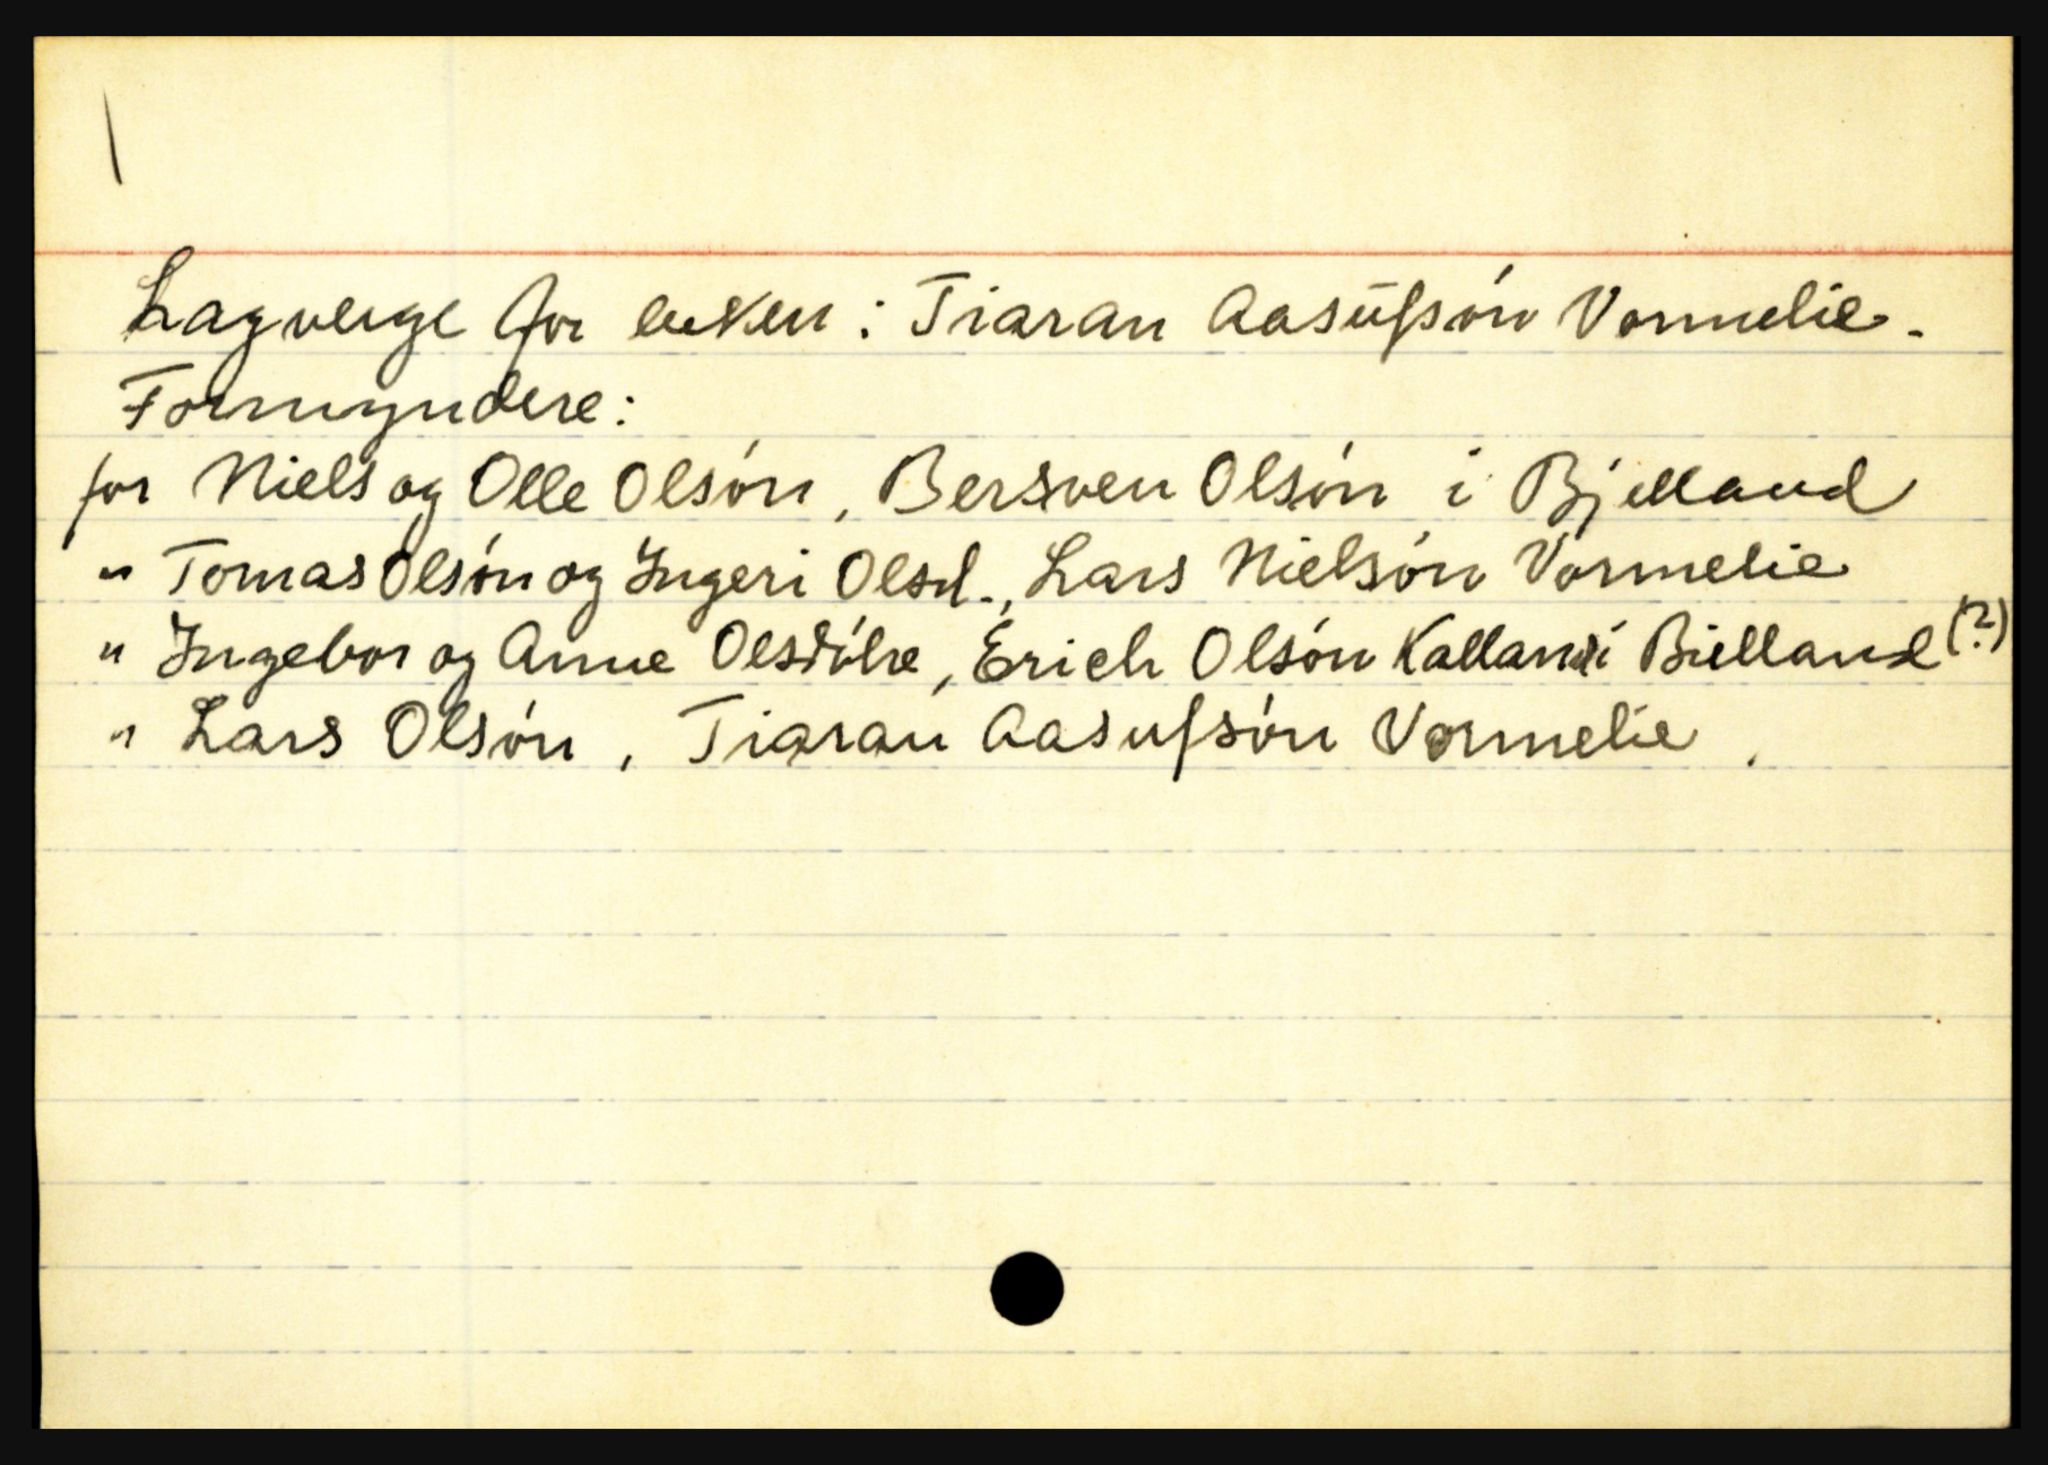 Lagverge for enken : Tiaran Aasúfsón Vormelie.
Formyndere:
for Niels og Olle Olsón, Bersven Olsón i Bjelland
" Tomas Olsón og Ingeri Olsd., Lars Nielsón Vormelie
" Ingebor og Anne Olsdótre, Erich Olsón Kalland i Bielland (?)
" Lars Olsón, Tiaran Aasufsón Vormelie.